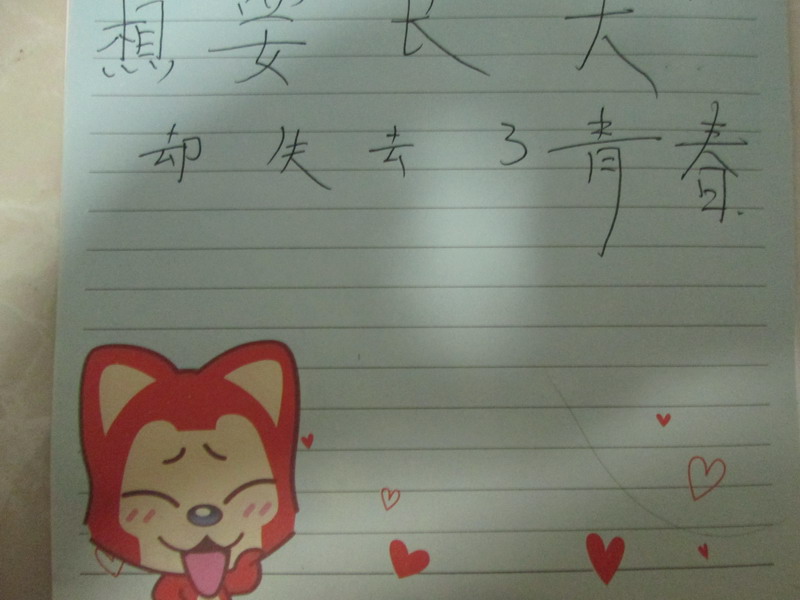 想要长大
却失去了青春